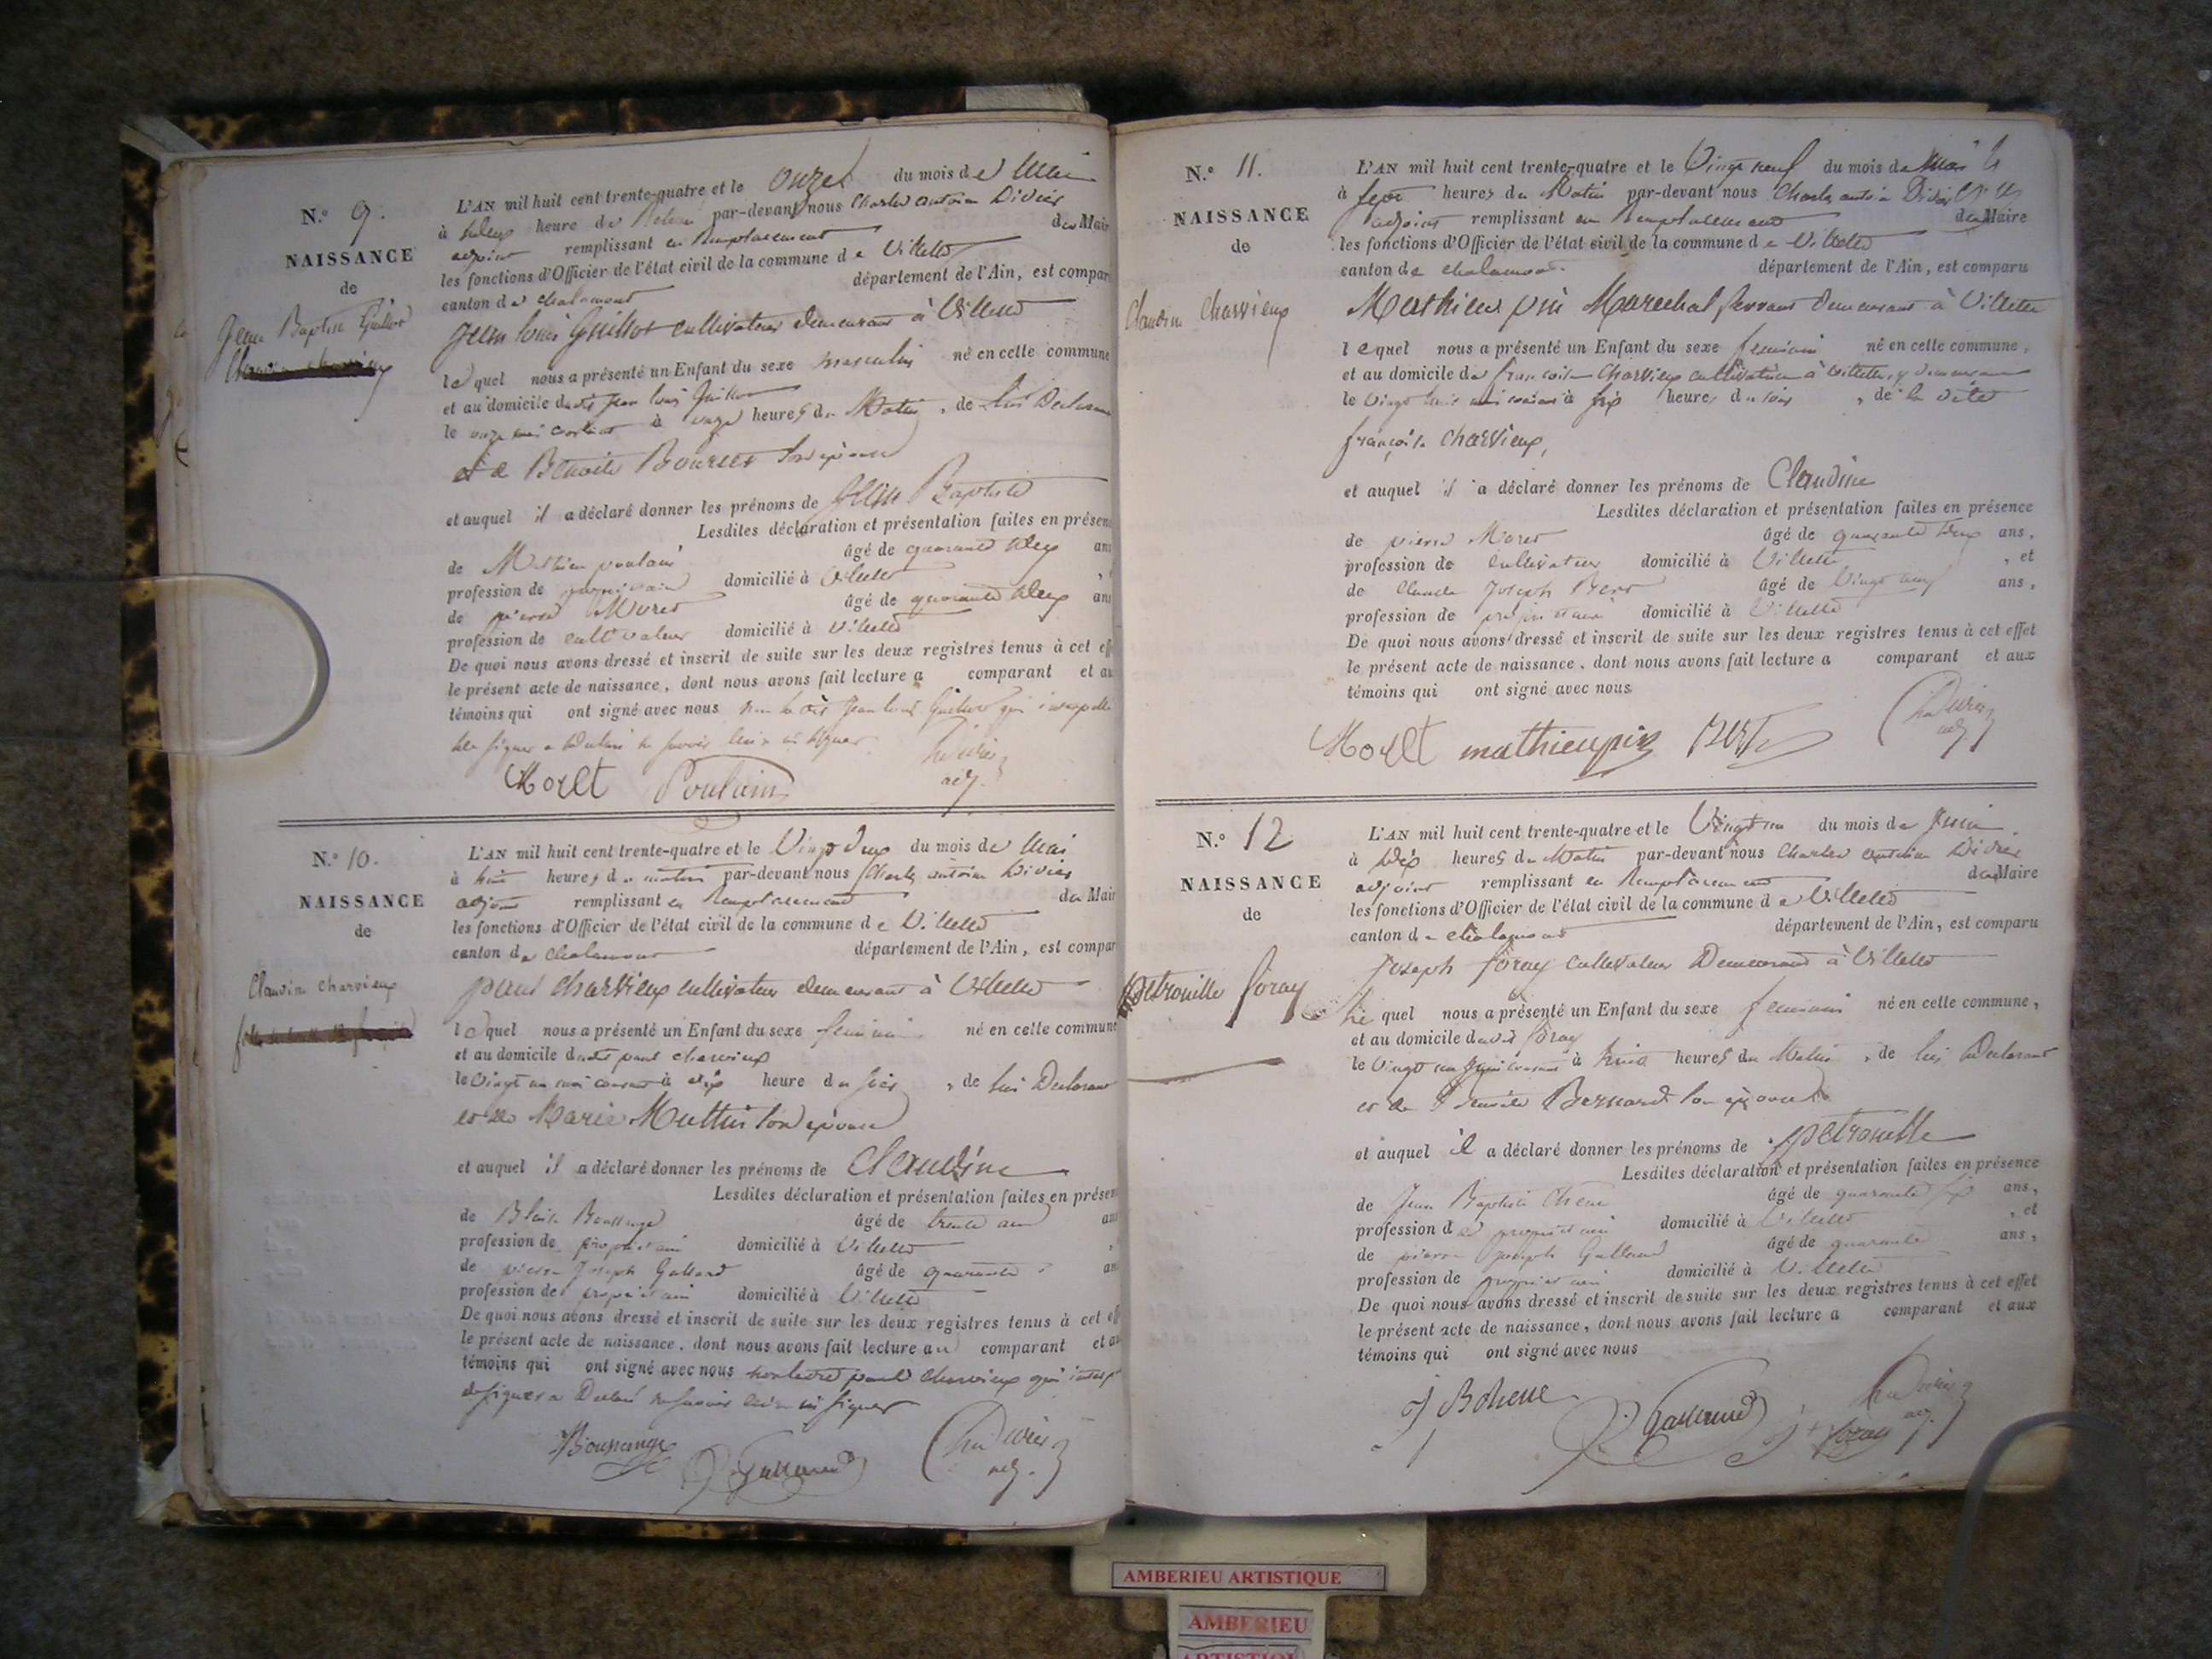 N.º 9.
NAISSANCE
de
Jean Baptiste Guillot
L'AN mil huit cent trente-quatre et le onze du mois de Mai
à deux heure de par-devant nous Charles antoine Divier
adjoint remplissant en Remplacement du Mair
les fonctions d'Officier de l'état civil de la commune de Villette
canton de chalamont département de l'Ain, est compar
Jean louis Guillot cultivateur demeurant à Villette
lequel nous a présenté un Enfant du sexe masculin né en cette commune
et au domicile dudit Jean louis Guillot
le onze mai courant à onze heures du Matin, de lui Declarant
et de Benoite Bourcet son épouse
et auquel il a déclaré donner les prénoms de Jean Baptiste
Lesdites déclaration et présentation faites en présen
de Mathieu poulain âgé de quarante deux an
profession de propriétaire domicilié à Villette
de pierre Moret âgé de quarante deux an
profession de cultivateur domicilié à Villette
De quoi nous avons dressé et inscrit de suite sur les deux registres tenus à cet eff
le présent acte de naissance, dont nous avons fait lecture a comparant et au
témoins qui ont signé avec nous non le dit Jean louis Guillot qui interpellé
de signer a Declaré ne savoir lire ni signer
Moret Poulain Divier
adj.
N.º 10.
NAISSANCE
de
Claudine Charvieux
L'AN mil huit cent trente-quatre et le Vingt deux du mois de Mai
à huit heures du matin par-devant nous Charles antoine Divier
adjoint remplissant en Remplacement du Mair
les fonctions d'Officier de l'état civil de la commune de Villette
canton de chalamont département de l'Ain, est compar
paul charvieux cultivateur demeurant à Villette
lequel nous a présenté un Enfant du sexe feminin né en cette commune
et au domicile dudit paul charvieux
le vingt un mai courant à dix heure du soir, de lui Declarant
et de Marie Muttin son épouse
et auquel il a déclaré donner les prénoms de Claudine
Lesdites déclaration et présentation faites en présen
de Blaise Boussange âgé de trente an
profession de propriétaire domicilié à Villette
de pierre Joseph Galland âgé de quarante an
profession de propriétaire domicilié à Villette
De quoi nous avons dressé et inscrit de suite sur les deux registres tenus à cet eff
le présent acte de naissance, dont nous avons fait lecture au comparant et au
témoins qui ont signé avec nous non ledit paul charvieux qui interp
de signer a Declaré ne savoir lire ni signer
Boussange Galland Divier
adj.
N.º 11.
NAISSANCE
de
Claudine Charvieux
L'AN mil huit cent trente-quatre et le Vingt neuf du mois de Mai
à sept heures du Matin par-devant nous Charles antoine Divier
adjoint remplissant en Remplacement du Maire
les fonctions d'Officier de l'état civil de la commune de Villette
canton de chalamont département de l'Ain, est comparu
Mathieu pin Marechal ferrant demeurant à Villette
lequel nous a présenté un Enfant du sexe feminin né en cette commune,
et au domicile de françoise Charvieux cultivatrice à Villette, y demeurant
le Vingt huit mai courant à six heures du soir, de la dite
françoise charvieux,
et auquel il a déclaré donner les prénoms de Claudine
Lesdites déclaration et présentation faites en présence
de pierre Moret âgé de quarante deux ans,
profession de Cultivateur domicilié à Villette, et
de Claude Joseph âgé de Vingt ans,
profession de propriétaire domicilié à Villette
De quoi nous avons dressé et inscrit de suite sur les deux registres tenus à cet effet
le présent acte de naissance, dont nous avons fait lecture a comparant et aux
témoins qui ont signé avec nous
Moret mathieu pin Divier
adj
N.º 12
NAISSANCE
de
petronille foray
L'AN mil huit cent trente-quatre et le Vingt un du mois de Juin
à dix heures du Matin par-devant nous Charles antoine Divier
adjoint remplissant en Remplacement du Maire
les fonctions d'Officier de l'état civil de la commune de Villette
canton de chalamont département de l'Ain, est comparu
Joseph foray cultivateur Demeurant à Villette
lequel nous a présenté un Enfant du sexe feminin né en cette commune,
et au domicile dudit foray
le Vingt un Juin courant à huit heures du Matin, de lui Declarant
et de Bernard son épouse
et auquel il a déclaré donner les prénoms de petronille
Lesdites déclaration et présentation faites en présence
de Jean Baptiste Chene âgé de quarante six ans,
profession de propriétaire domicilié à Villette, et
de pierre Joseph Galland âgé de quarante ans,
profession de propriétaire domicilié à Villette
De quoi nous avons dressé et inscrit de suite sur les deux registres tenus à cet effet
le présent acte de naissance, dont nous avons fait lecture a comparant et aux
témoins qui ont signé avec nous
J Bchene Galland foray Divier
adj.
AMBERIEU ARTISTIQUE
AMBERIEU
ARTISTIQUE